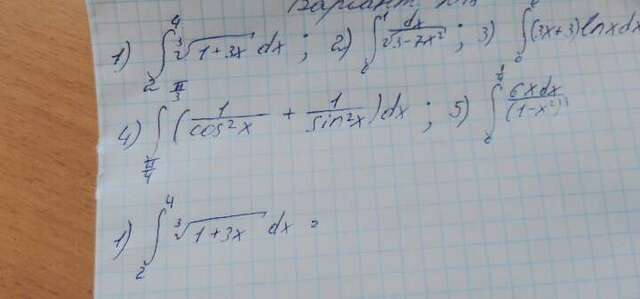 Вариант
1) ∫₂⁴ ∛(1+3x) dx ; 2) ∫ dx/√(3-7x²) ; 3) ∫ (3x+3) ln x dx
4) ∫_{π/4}^{π/3} (1/cos²x + 1/sin²x) dx ; 5) ∫ 6x dx/(1-x²)
1) ∫₂⁴ ∛(1+3x) dx =